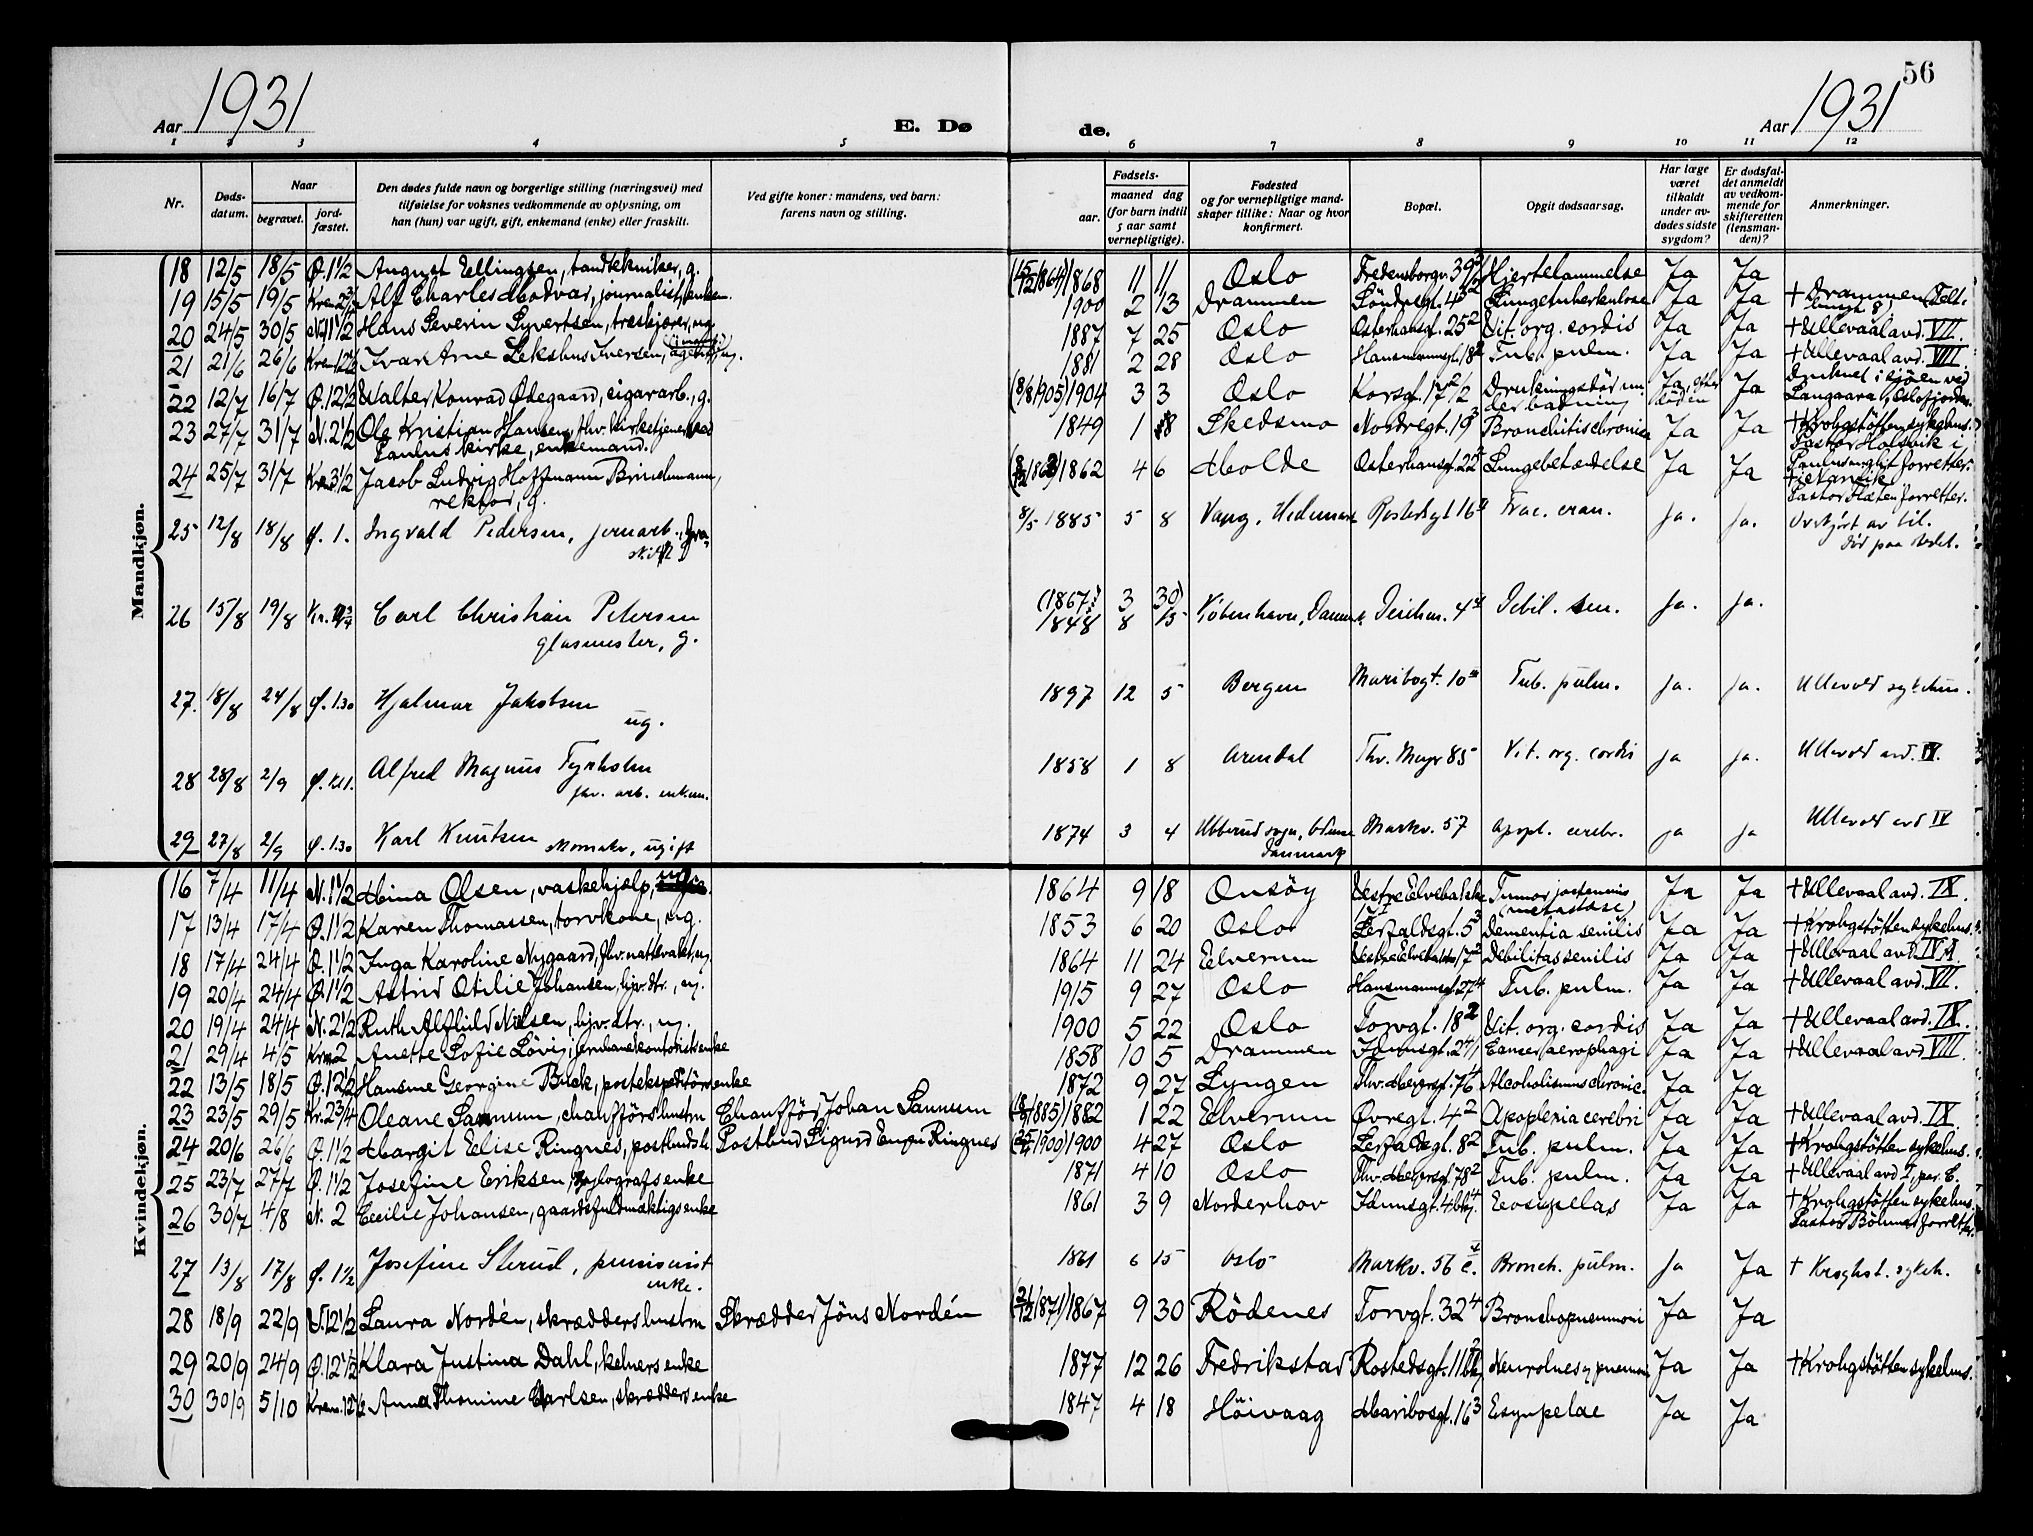 56
Aar 1931
E. Dø
de.
Aar 1931
1 2 3 4 5 6 7 8 9 10 11 12
Nr.
Døds-
datum.
Naar
begravet.
jord-
fæstet.
Den dødes fulde navn og borgerlige stilling (næringsvei) med
tilføielse for voksnes vedkommende av oplysning, om
han (hun) var ugift, gift, enkemand (enke) eller fraskilt.
Ved gifte koner: mandens, ved barn:
farens navn og stilling.
Fødsels-
aar.
maaned dag
(for barn indtil
5 aar samt
vernepligtige).
Fødested
og for vernepligtige mand-
skaper tillike: Naar og hvor
konfirmert.
Bopæl.
Opgit dødsaarsag.
Har læge
været
tilkaldt
under av-
dødes sidste
sygdom?
Er dødsfal-
det anmeldt
av vedkom-
mende for
skifteretten
(lensman-
den)?
Anmerkninger.
Mandkjøn.
18 12/5 18/5 Ø. 1 1/2 August Ellingsen, tandtekniker, g. 1868 11 11 Oslo Fredensborgv. 39 Hjertelammelse Ja Ja
19 15/5 19/5 Alf Charles Modvar, journalist, enkem. 1900 2 13 Drammen Söndregt. 4 Lungetuberkulose Ja Ja + Drammen
20 24/5 30/5 N. 1 1/2 Hans Severin Syvertsen, træskjærer, ug. 1887 7 25 Oslo Osterhausgt. 25² Vit. org. cordis Ja Ja + Ullevaal avd. VII.
21 21/6 26/6 Krem 12 1/2 Ivar Arne Iversen, agent, ug. 1881 2 28 Oslo Hausmannsgt. 18 Tub. pulm. Ja Ja + Ullevaal avd. VIII
22 12/7 16/7 Ø. 12 1/2 Walter Konrad Ødegaard, cigararb., g. (8/8 1905) 1904 3 3 Oslo Korsgt. 17 Drukningsdöd un-
der badning Ja, efter
döden Ja Druknet i sjöen ved
Langaara, Oslofjorden.
23 27/7 31/7 N. 2 1/2 Ole Kristian Hansen, fhv. kirketjener ved
Paulus kirke, enkemand. 1849 1 8 Skedsmo Nordregt. 19³ Bronchitis chronica Ja Ja + Krohgstötten sykehus.
Pastor Holsvik i
Paulus forretter.
24 25/7 31/7 Kr. 3 1/2 Jacob Ludvig Hoffmann Brinchmann,
rektor, g. 1862 4 6 Molde Osterhausgt. 22 Lungebetændelse Ja Ja
Pastor Flæten forretter.
25 12/8 18/8 Ø. 1. Ingvald Pedersen, jernarb., fra-
skilt 8/5 1885 5 8 Vang, Hedemark Rostedsgt 16 Frac. cran. Ja. Ja. Overkjørt av bil.
Død paa stedet.
26 15/8 19/8 Carl Christian Petersen
glasmester, g. (1867 3 30)
1848 8 15 København, Danmk. Deichm. 4 Debil. sen. Ja. Ja.
27. 18/8 24/8 Ø. 1.30 Hjalmar Jakobsen
ug. 1897 12 5 Bergen Maribogt. 10 Tub. pulm. Ja. Ja. Ullevold sykehus.
28 28/8 2/9 Ø. kl 1. Alfred Magnus Tyrholm
fhv. arb. enkem. 1858 1 8 Arendal Thv. Meyr 85 Vit. org. cordis Ja Ja. Ullevold avd. IX.
29 27/8 2/9 Ø. 1.30 Karl Knutsen skomaker, ugift 1874 3 4 Ubberud sogn, Odense
Danmark Markv. 57 apopl. cerebr. Ja Ja Ullevold avd IV
Kvindekjøn.
16 7/4 11/4 N. 1 1/2 Mina Olsen, vaskehjælp, 1864 9 18 Onsöy Tumor
(metastase) Ja Ja + Ullevaal avd. IX.
17 13/4 17/4 Ø. 1 1/2 Karen Thomassen, torvkone, ug. 1853 6 20 Oslo Herfaldsgt. 5³ Dementia senilis Ja Ja + Krohgstötten sykehus.
18 17/4 24/4 Ø. 1 1/2 Inga Karoline Nygaard, fhv. nattevakt, ug. 1864 11 24 Elverum 17² Debilitas senilis Ja Ja + Ullevaal avd. IV A.
19 20/4 24/4 Ø. 1 1/2 Astrid Otilie Johansen, hjv. dtr., ug. 1915 9 27 Oslo Hausmannsgt. 27⁴ Tub. pulm. Ja Ja + Ullevaal avd. VII.
20 19/4 24/4 N. 2 1/2 Ruth Alfhild Nilsen, hjv. dtr., ug. 1900 5 22 Oslo Torvgt. 18² Vit. org. cordis Ja Ja + Ullevaal avd. IX.
21 29/4 4/5 Krem 2 Anette Sofie Lövij, enke 1858 10 5 Drammen Cancer aesophagi Ja Ja + Ullevaal avd. VIII.
22 13/5 18/5 Ø. 12 1/2 Hansine Georgine Buck, postekspeditörs enke 1872 9 27 Lyngen Thv. Meyersgt. 76⁴ Alcoholismus chronic. Ja Ja
23 23/5 29/5 Kr. 2 3/4 Oleane Sannum, chaufförs hustru Chauffør Johan Sannum 1882 1 22 Elverum Øvregt. 4² Apoplexia cerebri Ja Ja + Ullevaal avd. IX.
24 20/6 26/6 Ø. 1 1/2 Margit Elise Ringnes, postbuds h. Postbud Sigurd Ringnes 1900 4 27 Oslo Herfaldsgt. 8² Tub. pulm. Ja Ja + Krohgstötten sykehus.
25 23/7 27/7 Ø. 1 1/2 Josefine Eriksen, xylografs enke 1871 4 10 Oslo Thv. Meyersgt. 78² Tub. pulm. Ja Ja + Ullevaal avd. I, pav. C.
26 30/7 4/8 N. 2 Cecilie Johansen, gaardsfuldmæktigs enke 1861 3 9 Norderhov Erysipelas Ja Ja + Krohgstötten sykehus.
Pastor Böhmer forretter.
27 13/8 17/8 Ø. 1 1/2 Josefine Sterud, pensionist
enke. 1861 6 15 Oslo Markv. 56 c. Bronch. pulm. Ja Ja + Kroghst. sykeh.
28 18/9 22/9 N. 12 1/2 Laura Nordén, skrædders hustru Skrædder Jöns Nordén 1867 9 30 Rödenes Torvgt. 32⁴ Bronchopneumoni Ja Ja
29 20/9 24/9 Ø. 12 1/2 Klara Justina Dahl, kelners enke 1877 12 26 Fredrikstad Rostedsgt. 11 Ja Ja + Krohgstötten sykehus.
30 30/9 5/10 Krem. 12 1/2 Anna Thomine Carlsen, skrædders enke 1847 4 18 Höivaag Maribosgt. 16³ Ja Ja